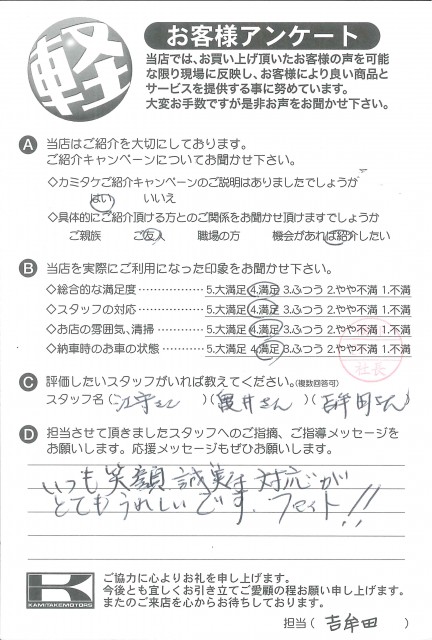 軽
お客様アンケート
当店では、お買い上げ頂いたお客様の声を可能
な限り現場に反映し、お客様により良い商品と
サービスを提供する事に努めています。
大変お手数ですが是非お声をお聞かせ下さい。
A 当店はご紹介を大切にしております。
ご紹介キャンペーンについてお聞かせ下さい。
◇カミタケご紹介キャンペーンのご説明はありましたでしょうか
はい いいえ
◇具体的にご紹介頂ける方とのご関係をお聞かせ頂けますでしょうか
ご親族 ご友人 職場の方 機会があれば紹介したい
B 当店を実際にご利用になった印象をお聞かせ下さい。
◇総合的な満足度……………… 5.大満足 4.満足 3.ふつう 2.やや不満 1.不満
◇スタッフの対応……………… 5.大満足 4.満足 3.ふつう 2.やや不満 1.不満
◇お店の雰囲気、清掃………… 5.大満足 4.満足 3.ふつう 2.やや不満 1.不満
◇納車時のお車の状態………… 5.大満足 4.満足 3.ふつう 2.やや不満 1.不満
社長
C 評価したいスタッフがいれば教えてください。(複数回答可)
スタッフ名 ( 江守さん )( 亀井さん )( 吉牟田さん )
D 担当させて頂きましたスタッフへのご指摘、ご指導メッセージを
お願いします。応援メッセージもぜひお願いします。
いつも笑顔 誠実な 対応が
とてもうれしいです。ファイト!!
K
KAMITAKEMOTORS
ご協力に心よりお礼を申し上げます。
今後とも宜しくお引き立てご愛顧の程お願い申し上げます。
またのご来店を心からお待ちしております。
担当 ( 吉牟田 )